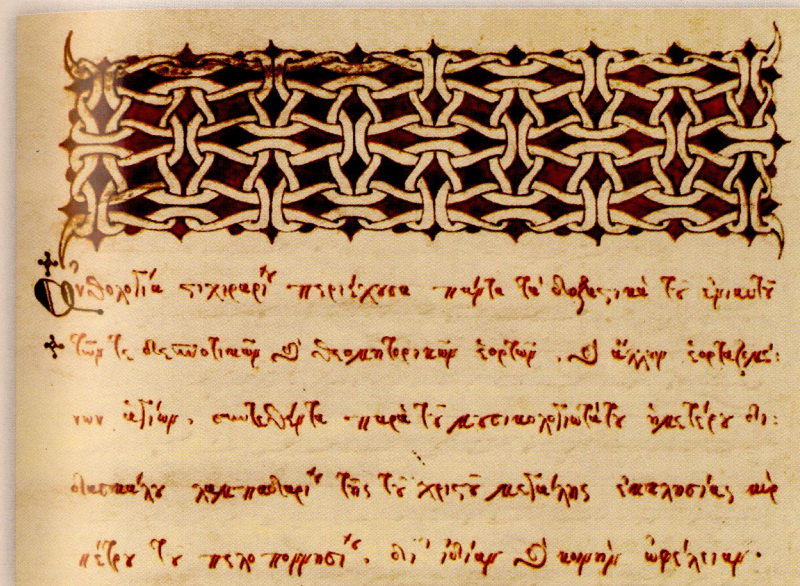 Ἀνθολογία στιχηραρίου περιέχουσα πάντα τὰ δοξαστικὰ τοῦ ἐνιαυτοῦ
τῶν τε δεσποτικῶν καὶ θεομητορικῶν ἑορτῶν, καὶ ἄλλων ἑορταζομέ:
νων ἁγίων, συντεθέντα παρὰ τοῦ μουσικολογιωτάτου ἡμετέρου δι:
δασκάλου λαμπαδαρίου τῆς τοῦ χριστοῦ μεγάλης ἐκκλησίας κὺρ
πέτρου τοῦ πελοποννησίου, δι' ἰδίαν καὶ κοινὴν ὠφέλειαν.